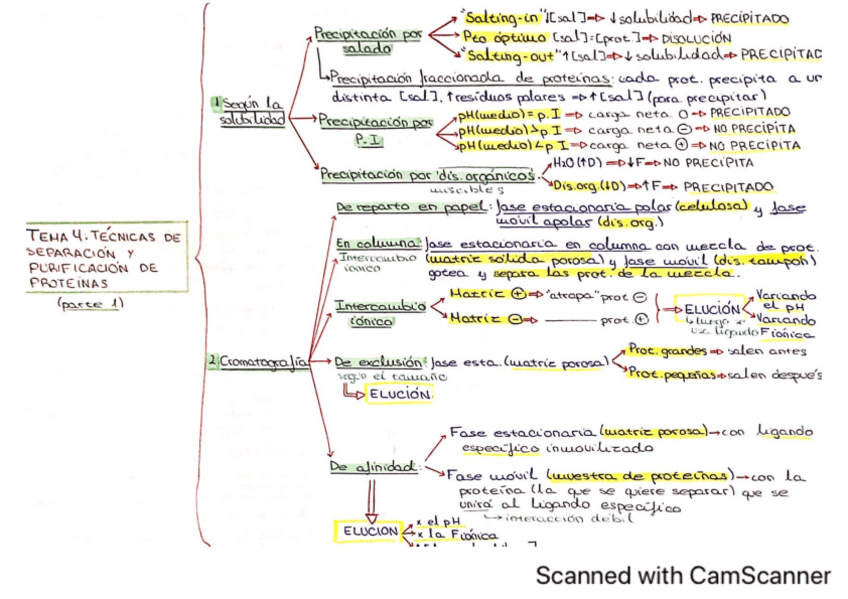 "Salting-in" ↓[sal] ⇒ ↓solubilidad ⇒ PRECIPITADO
Precipitación por salado
Pto óptimo [sal]=[prot] ⇒ DISOLUCIÓN
"Salting-out" ↑[sal] ⇒ ↓solubilidad ⇒ PRECIPITAD
Precipitación fraccionada de proteínas: cada prot. precipita a un
distinta [sal]. ↑residuos polares ⇒ ↑[sal] (para precipitar)
1. Según la solubilidad
Precipitación por P.I
pH(medio) = p.I ⇒ carga neta 0 ⇒ PRECIPITADO
pH(medio) > p.I ⇒ carga neta ⊖ ⇒ NO PRECIPITA
pH(medio) < p.I ⇒ carga neta ⊕ ⇒ NO PRECIPITA
Precipitación por dis. orgánicos
miscibles
H2O (↑D) ⇒ ↓F ⇒ NO PRECIPITA
Dis.org. (↓D) ⇒ ↑F ⇒ PRECIPITADO
TEMA 4: TÉCNICAS DE
SEPARACIÓN Y
PURIFICACIÓN DE
PROTEÍNAS
(parte 1)
2. Cromatografía
De reparto en papel: fase estacionaria polar (celulosa) y fase
móvil apolar (dis. org.)
En columna: fase estacionaria en columna con mezcla de prot.
Intercambio iónico
(matriz sólida porosa) y fase móvil (dis. tampón)
gotea y separa las prot. de la mezcla.
Intercambio iónico
Matriz ⊕ ⇒ "atrapa" prot ⊖
Matriz ⊖ ⇒ ——— prot ⊕
⇒ ELUCIÓN
luego se use ligando
Variando el pH
Variando F iónica
De exclusión: fase esta. (matriz porosa)
según el tamaño
Prot. grandes ⇒ salen antes
Prot. pequeñas ⇒ salen después
ELUCIÓN
De afinidad:
Fase estacionaria (matriz porosa) → con ligando
específico inmovilizado
Fase móvil (muestra de proteínas) → con la
proteína (la que se quiere separar) que se
unirá al ligando específico
→ interacción débil
ELUCIÓN
x el pH
x la F iónica
Scanned with CamScanner